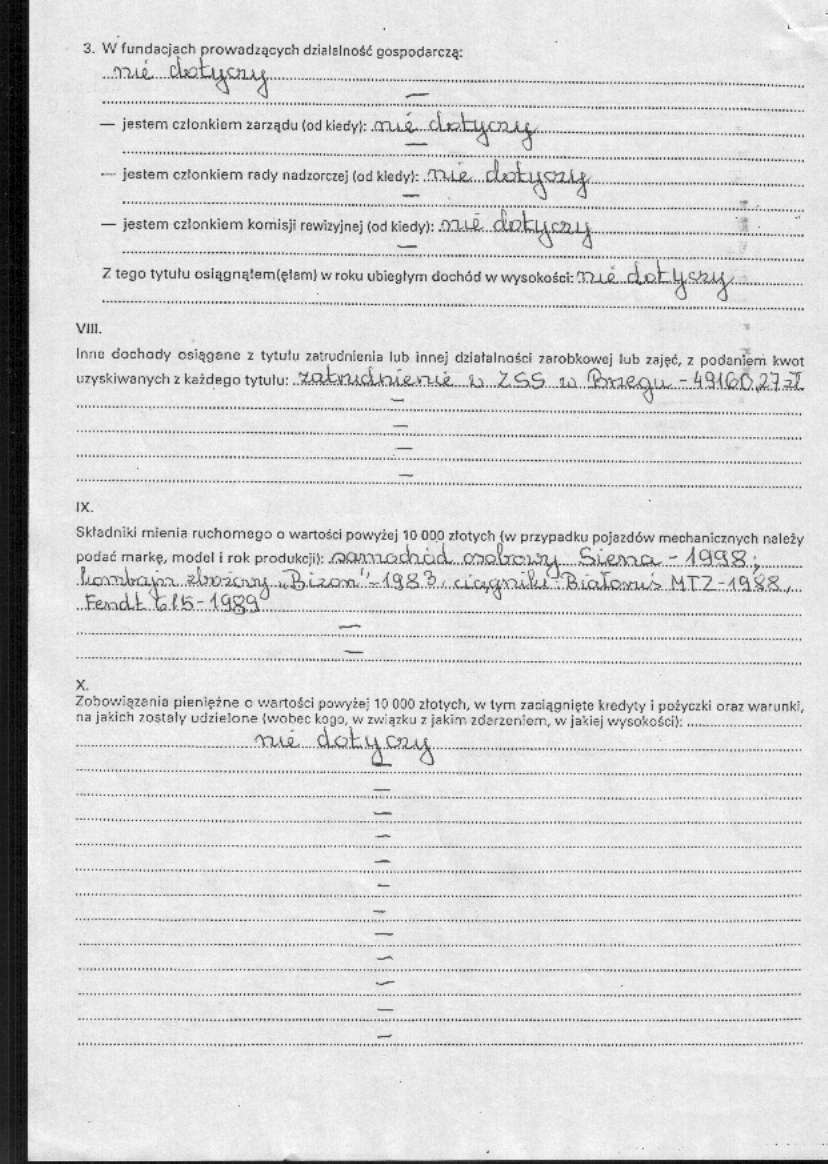 3. W fundacjach prowadzących działalność gospodarczą:
nie dotyczy
— jestem członkiem zarządu (od kiedy): nie dotyczy
— jestem członkiem rady nadzorczej (od kiedy): nie dotyczy
— jestem członkiem komisji rewizyjnej (od kiedy): nie dotyczy
Z tego tytułu osiągnąłem(ęłam) w roku ubiegłym dochód w wysokości: nie dotyczy
VIII.
Inne dochody osiągane z tytułu zatrudnienia lub innej działalności zarobkowej lub zajęć, z podaniem kwot
uzyskiwanych z każdego tytułu: zatrudnienie w ZSS w Brzegu - 49160,27 zł
IX.
Składniki mienia ruchomego o wartości powyżej 10 000 złotych (w przypadku pojazdów mechanicznych należy
podać markę, model i rok produkcji): samochód osobowy Siena - 1998;
kombajn zbożowy „Bizon" - 1983, ciągniki: Białoruś MTZ - 1988,
Fendt 615 - 1989
X.
Zobowiązania pieniężne o wartości powyżej 10 000 złotych, w tym zaciągnięte kredyty i pożyczki oraz warunki,
na jakich zostały udzielone (wobec kogo, w związku z jakim zdarzeniem, w jakiej wysokości):
nie dotyczy